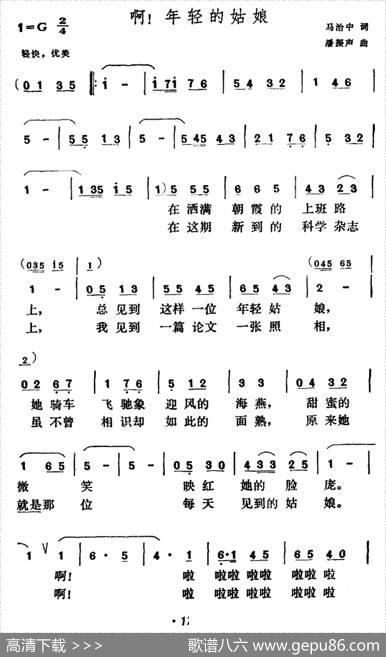 啊！年轻的姑娘
1=G 2/4
马治中 词
潘振声 曲
轻快，优美
(0 1 3 5 ‖: i - | i 7i 7 6 | 7 5 3 2 |
5 - | 5 5 1 3 | 5 - | 5 45 4 3 | 2 1 7 6 | 5 5 5 5 |
1 - | 1 35 i 5 | 1) 5 5 5 | 6 6 5 | 4 3 2 3 |
在 洒满 朝霞 的 上班 路
在 这期 新到 的 科学 杂志
(035 i5 | 1) (045 65 |
1 - | 0 5 1 3 | 5 5 4 5 | 6 5 4 3 | 2 - |
上， 总 见到 这样 一位 年轻 姑 娘，
上， 我 见到 一篇 论文 一张 照 相，
2)
0 2 6 7 | 1 7 6 | 5 4 5 | 3 3 | 0 4 3 2 |
她 骑车 飞驰象 迎风的 海燕， 甜蜜的
虽 不曾 相识却 如此的 面熟， 原来她
1 6 5 | 5 - | 0 5 3 0 | 4 3 3 2 5 | 1 - |
微 笑 映红 她的 脸 庞。
就是那 位 每天 见到的 姑 娘。
1 V 1 | 6 · 5 | 4 · 1 | 6·1 4 5 | 6 5 4 0 |
啊！ 啦 啦啦 啦啦 啦啦 啦
啊！ 啦 啦啦 啦啦 啦啦 啦
高清下载 >>>
歌谱八六 www.gepu86.com